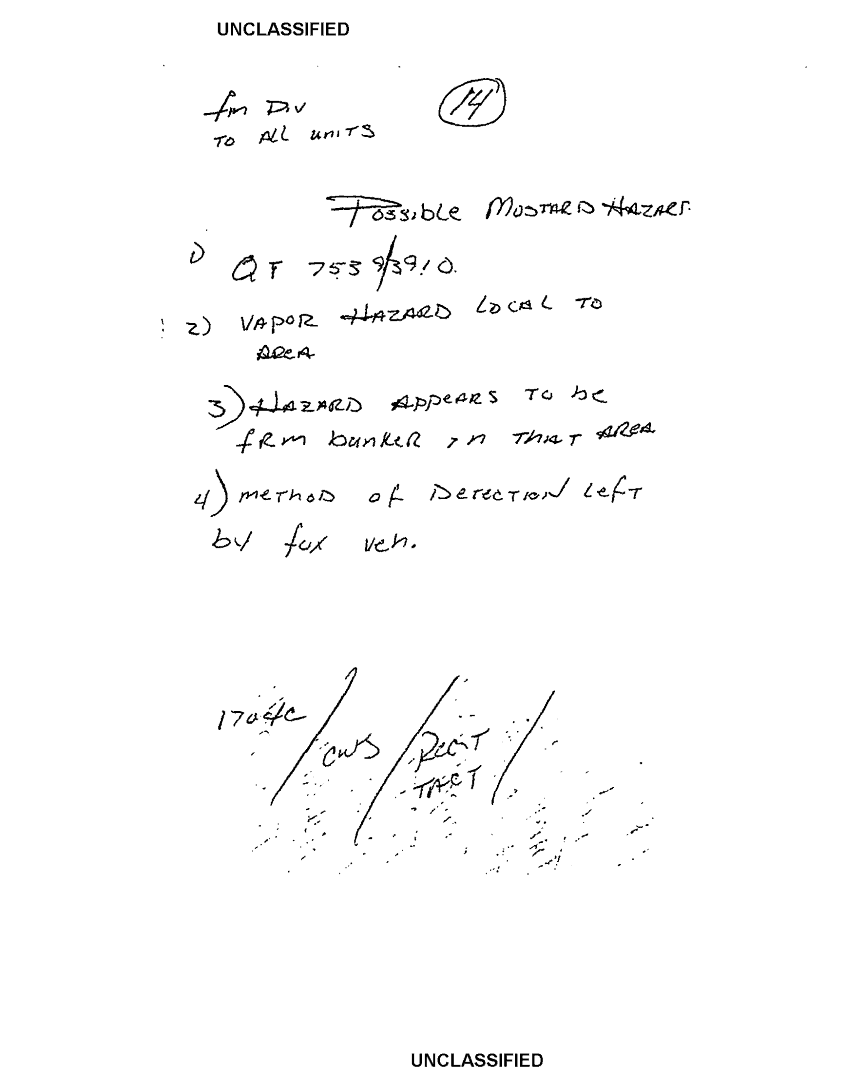 UNCLASSIFIED
14
fm Div
TO ALL UNITS
Possible MUSTARD HAZARD.
1) QT 7539/3910.
2) VAPOR HAZARD LOCAL TO
AREA
3) HAZARD APPEARS TO be
fRm bunker in THAT AREA
4) METHOD of DETECTION Left
by fox veh.
1704C / CWS / REGT /
TACT
UNCLASSIFIED